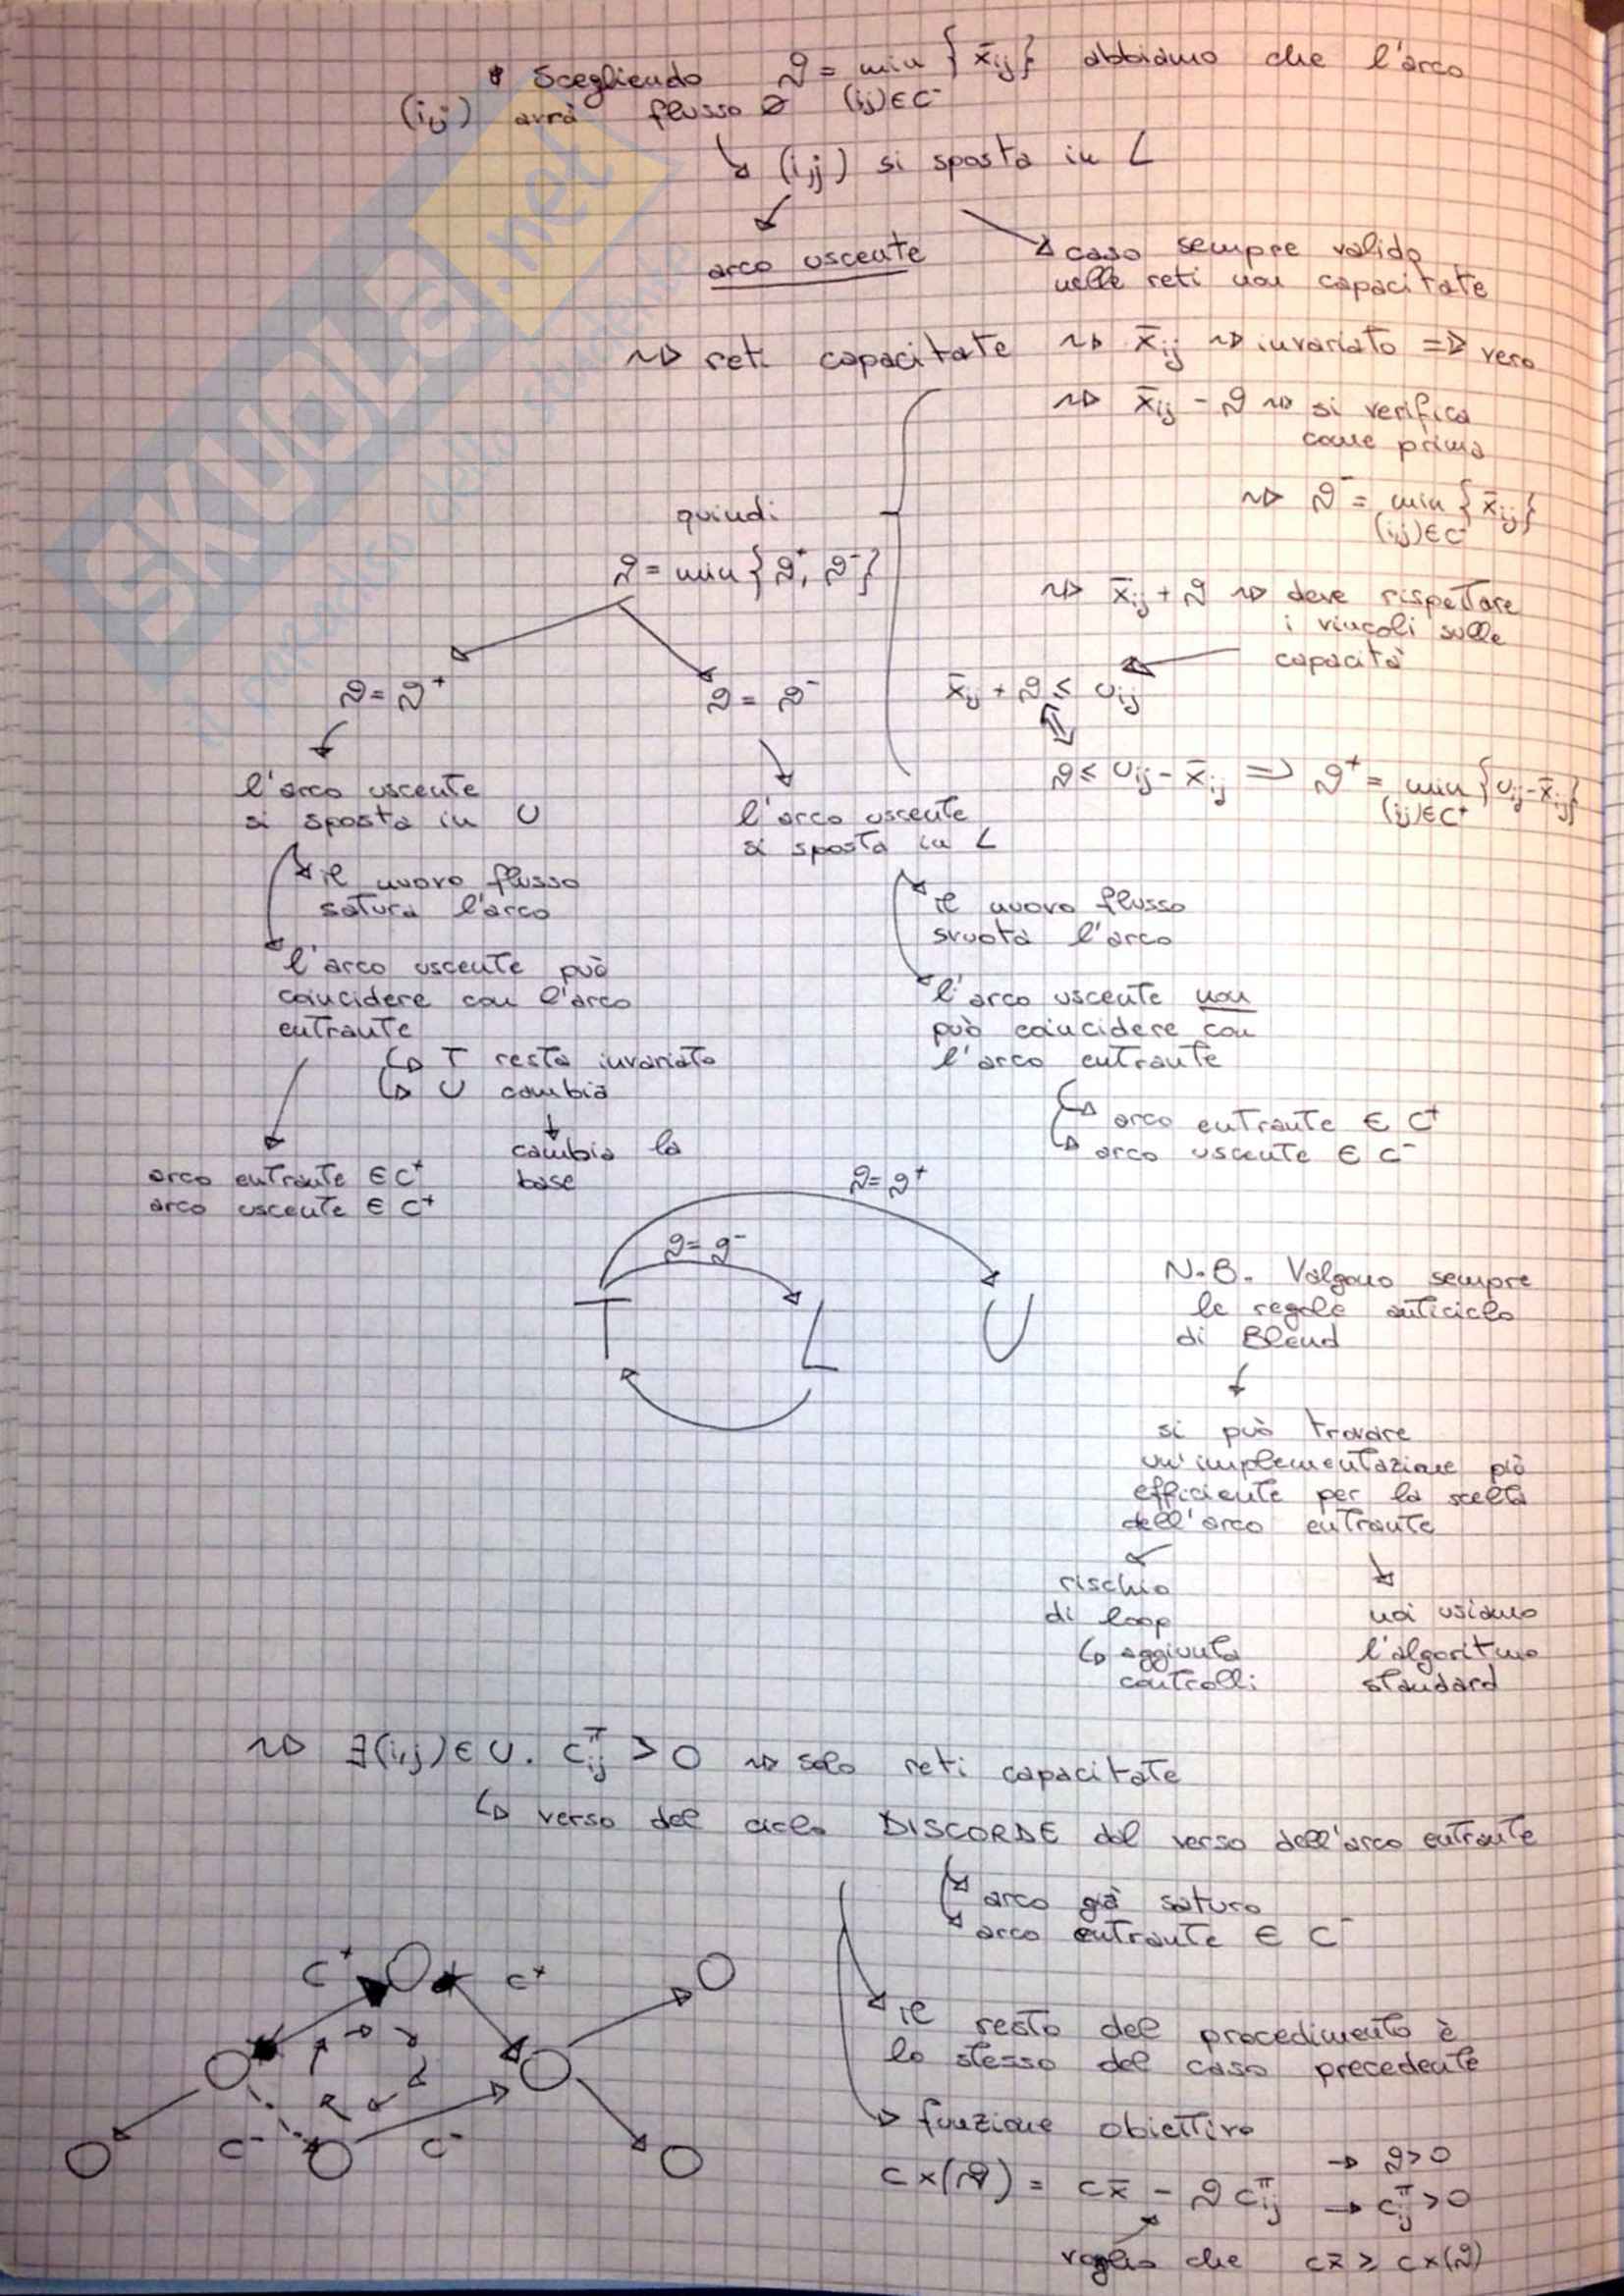 • Scegliendo ϑ = min {x̄ij} abbiamo che l'arco
(i,j)∈C⁻
(i,j) avrà flusso ∅
↘ (i,j) si sposta in L
arco uscente
caso sempre valido
nelle reti non capacitate
~▷ reti capacitate ~▷ x̄ij ~▷ invariato => vero
~▷ x̄ij - ϑ ~▷ si verifica
come prima
~▷ ϑ⁻ = min {x̄ij}
(i,j)∈C⁻
quindi
ϑ = min {ϑ⁺, ϑ⁻}
~▷ x̄ij + ϑ ~▷ deve rispettare
i vincoli sulle
capacità
x̄ij + ϑ ≤ uij
⇕
ϑ ≤ uij - x̄ij => ϑ⁺ = min {uij - x̄ij}
(i,j)∈C⁺
ϑ = ϑ⁺
l'arco uscente
si sposta in U
il nuovo flusso
satura l'arco
l'arco uscente può
coincidere con l'arco
entrante
↳ T resta invariato
↳ U cambia
↓
cambia la
base
arco entrante ∈ C⁺
arco uscente ∈ C⁺
ϑ = ϑ⁻
l'arco uscente
si sposta in L
il nuovo flusso
svuota l'arco
l'arco uscente non
può coincidere con
l'arco entrante
arco entrante ∈ C⁺
arco uscente ∈ C⁻
ϑ = ϑ⁺
ϑ = ϑ⁻
T L U
N.B. Valgono sempre
le regole anticiclo
di Bland
↓
si può trovare
un'implementazione più
efficiente per la scelta
dell'arco entrante
rischio
di loop
↳ aggiunta
controlli
noi usiamo
l'algoritmo
standard
~▷ ∃(i,j)∈U. cᵢⱼ^π > 0 ~▷ solo reti capacitate
↳ verso del ciclo DISCORDE dal verso dell'arco entrante
arco già saturo
arco entrante ∈ C⁻
C⁺ C⁺
C⁻ C⁻
il resto del procedimento è
lo stesso del caso precedente
funzione obiettivo
→ ϑ>0
cx(ϑ) = cx̄ - ϑ cᵢⱼ^π → cᵢⱼ^π > 0
voglio che cx̄ ≥ cx(ϑ)
SKUOLa.net
il paradiso dello studente